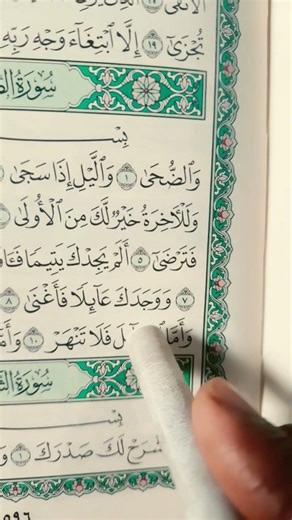 ٱلْأَتْقَى ١٧
تُجْزَىٰٓ ١٩ إِلَّا ٱبْتِغَآءَ وَجْهِ رَبِّهِ
سُورَةُ
بِسْـ
وَٱلضُّحَىٰ ١ وَٱلَّيْلِ إِذَا سَجَىٰ
وَلَلْـَٔاخِرَةُ خَيْرٌ لَّكَ مِنَ ٱلْأُولَىٰ
فَتَرْضَىٰٓ ٥ أَلَمْ يَجِدْكَ يَتِيمًا
٧ وَوَجَدَكَ عَآئِلًا فَأَغْنَىٰ ٨
وَأَمَّا فَلَا تَنْهَرْ ١٠
سُورَةُ
بِسْـ
لَكَ صَدْرَكَ ١
٥٩٦